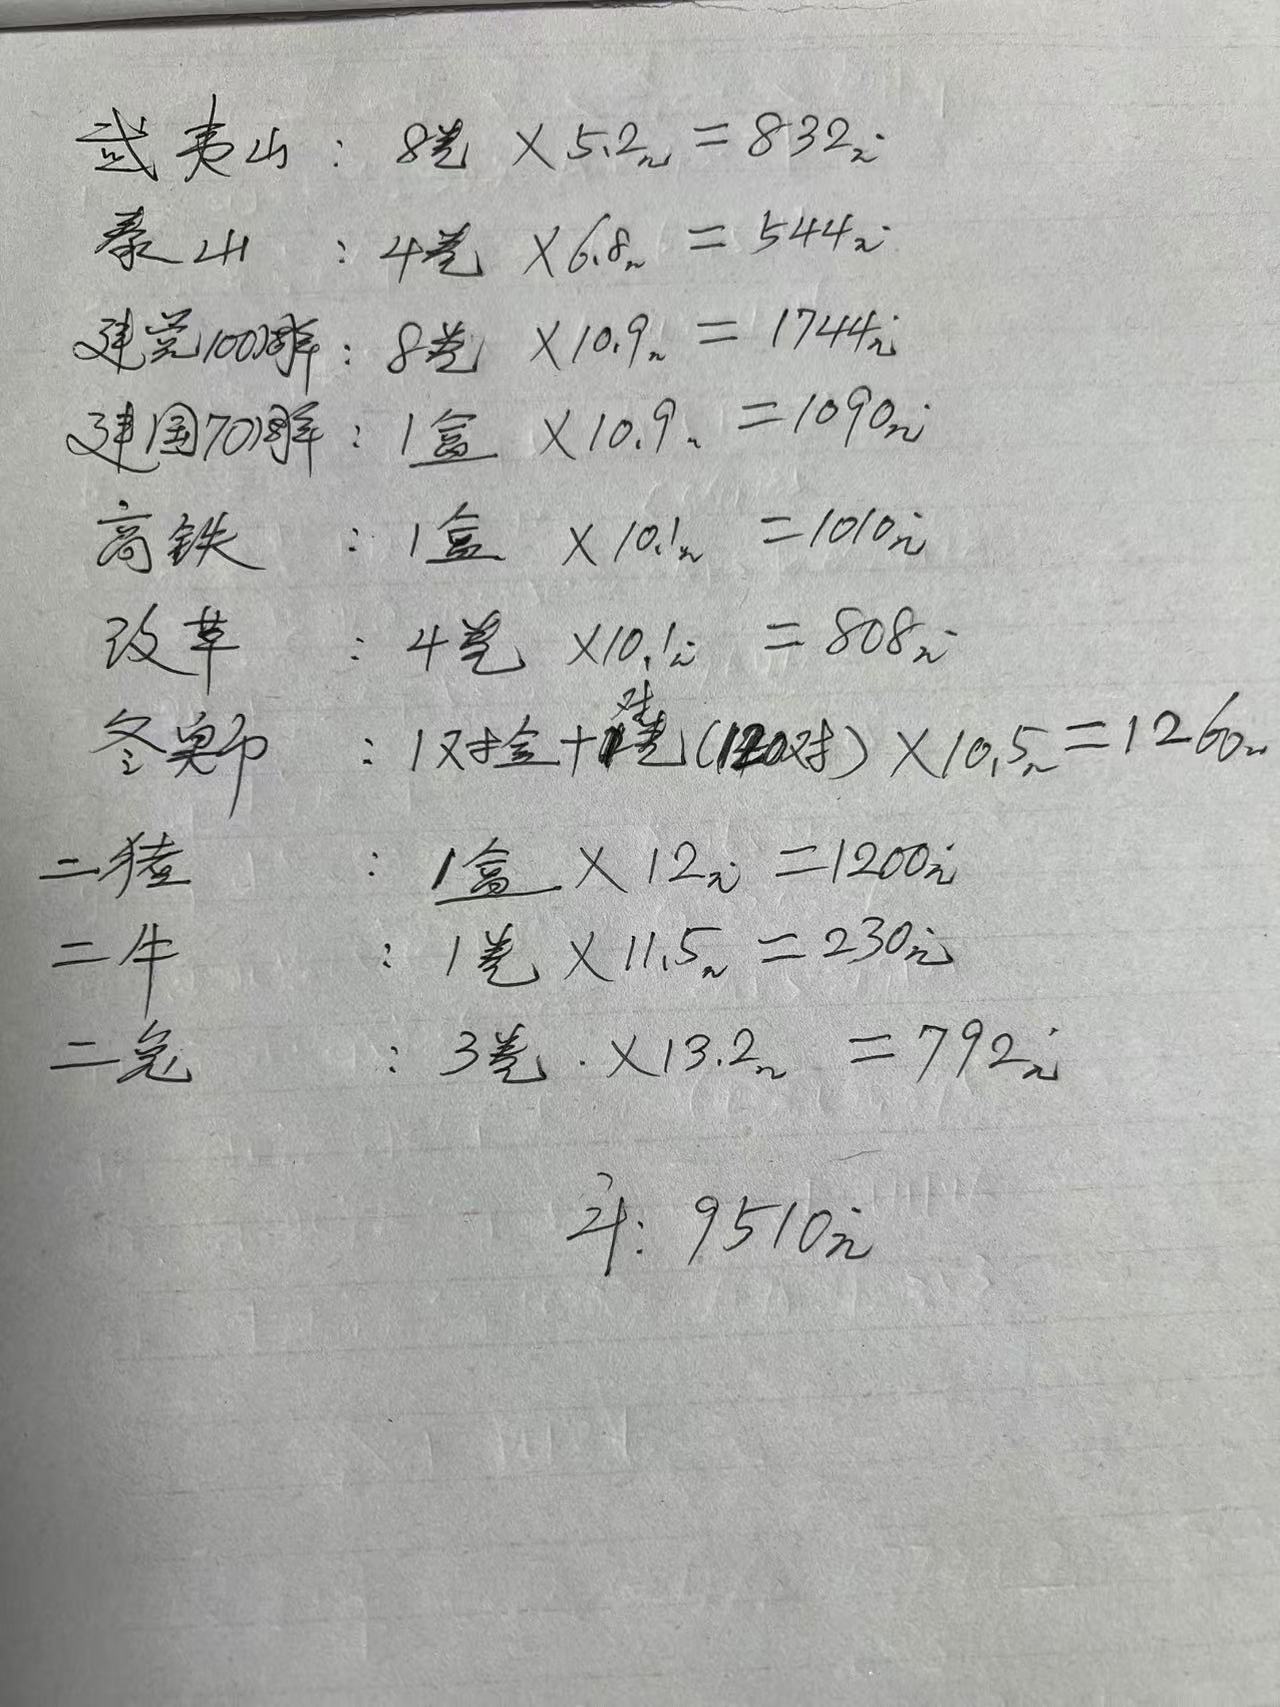 武夷山：8卷×5.2元=832元
泰山：4卷×6.8元=544元
建党100周年：8卷×10.9元=1744元
建国70周年：1盒×10.9元=1090元
高铁：1盒×10.1元=1010元
改革：4卷×10.1元=808元
冬奥币：1对盒+1对卷(120对)×10.5元=1260元
二猪：1盒×12元=1200元
二牛：1卷×11.5元=230元
二兔：3卷.×13.2元=792元
计：9510元